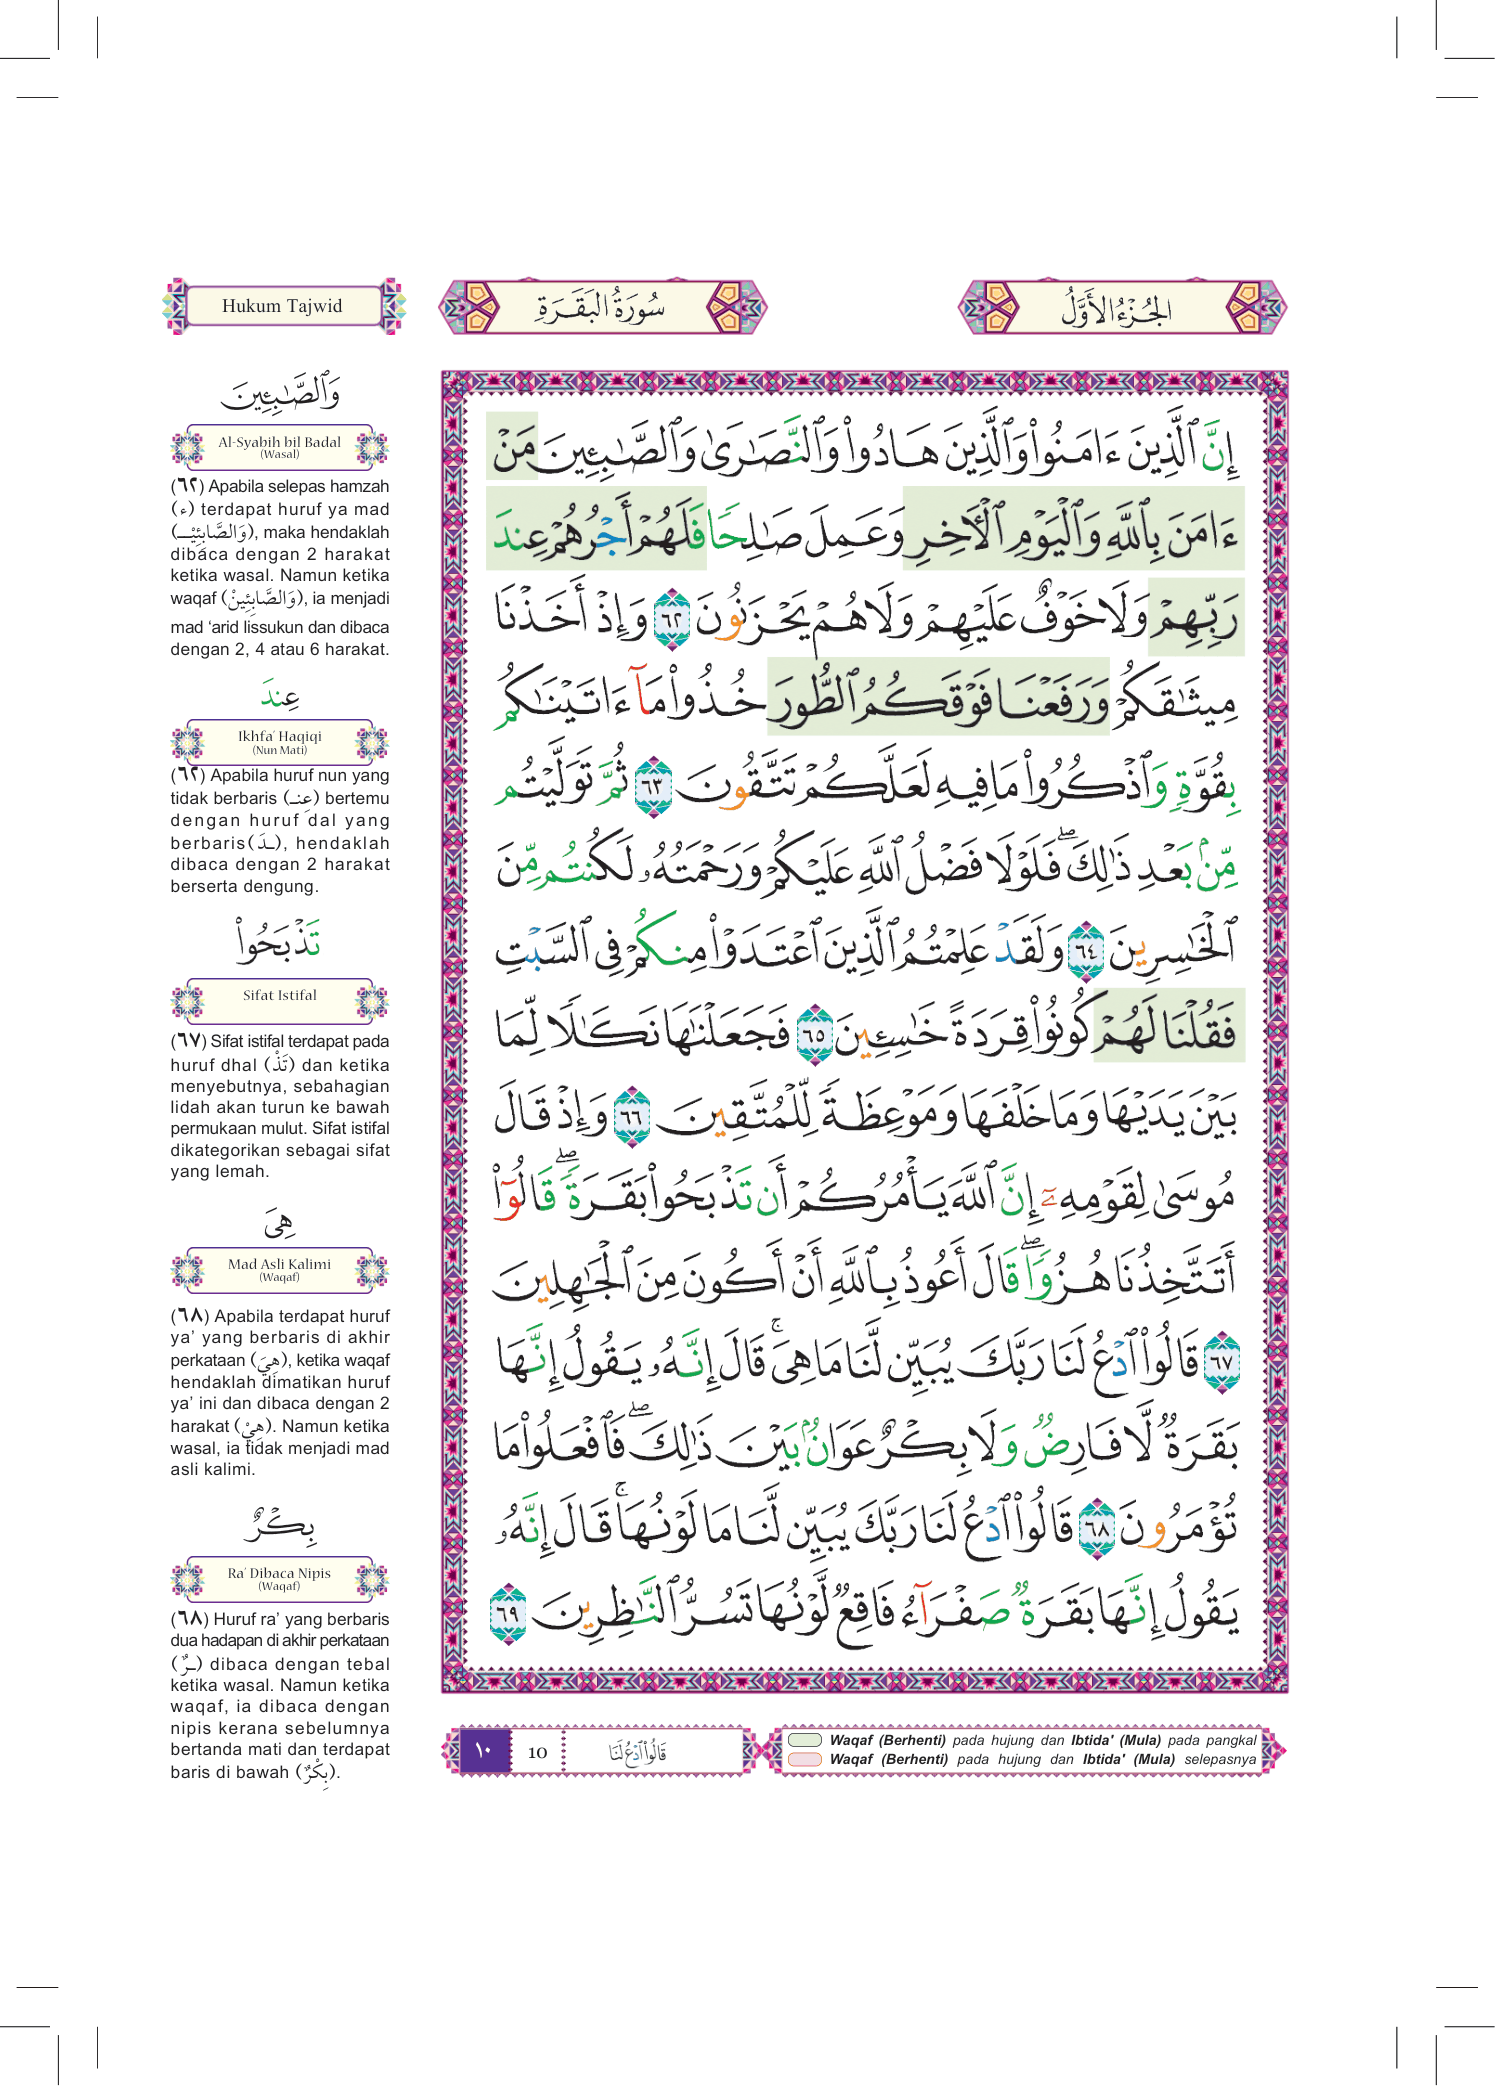 Hukum Tajwid
سُورَةُ البَقَرَةِ
الجُزْءُ الأَوَّلُ
وَٱلصَّٰبِـِٔينَ
Al-Syabih bil Badal
(Wasal)
(٦٢) Apabila selepas hamzah
(ء) terdapat huruf ya mad
(وَالصَّابِئِيْـ), maka hendaklah
dibaca dengan 2 harakat
ketika wasal. Namun ketika
waqaf (وَالصَّابِئِينْ), ia menjadi
mad ‘arid lissukun dan dibaca
dengan 2, 4 atau 6 harakat.
عِندَ
Ikhfa’ Haqiqi
(Nun Mati)
(٦٢) Apabila huruf nun yang
tidak berbaris (عِنـ) bertemu
dengan huruf dal yang
berbaris(ـدَ), hendaklah
dibaca dengan 2 harakat
berserta dengung.
تَذْبَحُوا۟
Sifat Istifal
(٦٧) Sifat istifal terdapat pada
huruf dhal (تَذْ) dan ketika
menyebutnya, sebahagian
lidah akan turun ke bawah
permukaan mulut. Sifat istifal
dikategorikan sebagai sifat
yang lemah.
هِىَ
Mad Asli Kalimi
(Waqaf)
(٦٨) Apabila terdapat huruf
ya’ yang berbaris di akhir
perkataan (هِيَ), ketika waqaf
hendaklah dimatikan huruf
ya’ ini dan dibaca dengan 2
harakat (هِيْ). Namun ketika
wasal, ia tidak menjadi mad
asli kalimi.
بِكْرٌ
Ra’ Dibaca Nipis
(Waqaf)
(٦٨) Huruf ra’ yang berbaris
dua hadapan di akhir perkataan
(ـرٌ) dibaca dengan tebal
ketika wasal. Namun ketika
waqaf, ia dibaca dengan
nipis kerana sebelumnya
bertanda mati dan terdapat
baris di bawah (بِكْرٌ).
إِنَّ ٱلَّذِينَ ءَامَنُوا۟ وَٱلَّذِينَ هَادُوا۟ وَٱلنَّصَٰرَىٰ وَٱلصَّٰبِـِٔينَ مَنْ
ءَامَنَ بِٱللَّهِ وَٱلْيَوْمِ ٱلْـَٔاخِرِ وَعَمِلَ صَٰلِحًا فَلَهُمْ أَجْرُهُمْ عِندَ
رَبِّهِمْ وَلَا خَوْفٌ عَلَيْهِمْ وَلَا هُمْ يَحْزَنُونَ ٦٢ وَإِذْ أَخَذْنَا
مِيثَٰقَكُمْ وَرَفَعْنَا فَوْقَكُمُ ٱلطُّورَ خُذُوا۟ مَآ ءَاتَيْنَٰكُم
بِقُوَّةٍ وَٱذْكُرُوا۟ مَا فِيهِ لَعَلَّكُمْ تَتَّقُونَ ٦٣ ثُمَّ تَوَلَّيْتُم
مِّنۢ بَعْدِ ذَٰلِكَ ۖ فَلَوْلَا فَضْلُ ٱللَّهِ عَلَيْكُمْ وَرَحْمَتُهُۥ لَكُنتُم مِّنَ
ٱلْخَٰسِرِينَ ٦٤ وَلَقَدْ عَلِمْتُمُ ٱلَّذِينَ ٱعْتَدَوْا۟ مِنكُمْ فِى ٱلسَّبْتِ
فَقُلْنَا لَهُمْ كُونُوا۟ قِرَدَةً خَٰسِـِٔينَ ٦٥ فَجَعَلْنَٰهَا نَكَٰلًا لِّمَا
بَيْنَ يَدَيْهَا وَمَا خَلْفَهَا وَمَوْعِظَةً لِّلْمُتَّقِينَ ٦٦ وَإِذْ قَالَ
مُوسَىٰ لِقَوْمِهِۦٓ إِنَّ ٱللَّهَ يَأْمُرُكُمْ أَن تَذْبَحُوا۟ بَقَرَةً ۖ قَالُوٓا۟
أَتَتَّخِذُنَا هُزُوًا ۖ قَالَ أَعُوذُ بِٱللَّهِ أَنْ أَكُونَ مِنَ ٱلْجَٰهِلِينَ
٦٧ قَالُوا۟ ٱدْعُ لَنَا رَبَّكَ يُبَيِّن لَّنَا مَا هِىَ ۚ قَالَ إِنَّهُۥ يَقُولُ إِنَّهَا
بَقَرَةٌ لَّا فَارِضٌ وَلَا بِكْرٌ عَوَانٌۢ بَيْنَ ذَٰلِكَ ۖ فَٱفْعَلُوا۟ مَا
تُؤْمَرُونَ ٦٨ قَالُوا۟ ٱدْعُ لَنَا رَبَّكَ يُبَيِّن لَّنَا مَا لَوْنُهَا ۚ قَالَ إِنَّهُۥ
يَقُولُ إِنَّهَا بَقَرَةٌ صَفْرَآءُ فَاقِعٌ لَّوْنُهَا تَسُرُّ ٱلنَّٰظِرِينَ ٦٩
١٠ 10 قَالُوا۟ ٱدْعُ لَنَا
Waqaf (Berhenti) pada hujung dan Ibtida' (Mula) pada pangkal
Waqaf (Berhenti) pada hujung dan Ibtida' (Mula) selepasnya